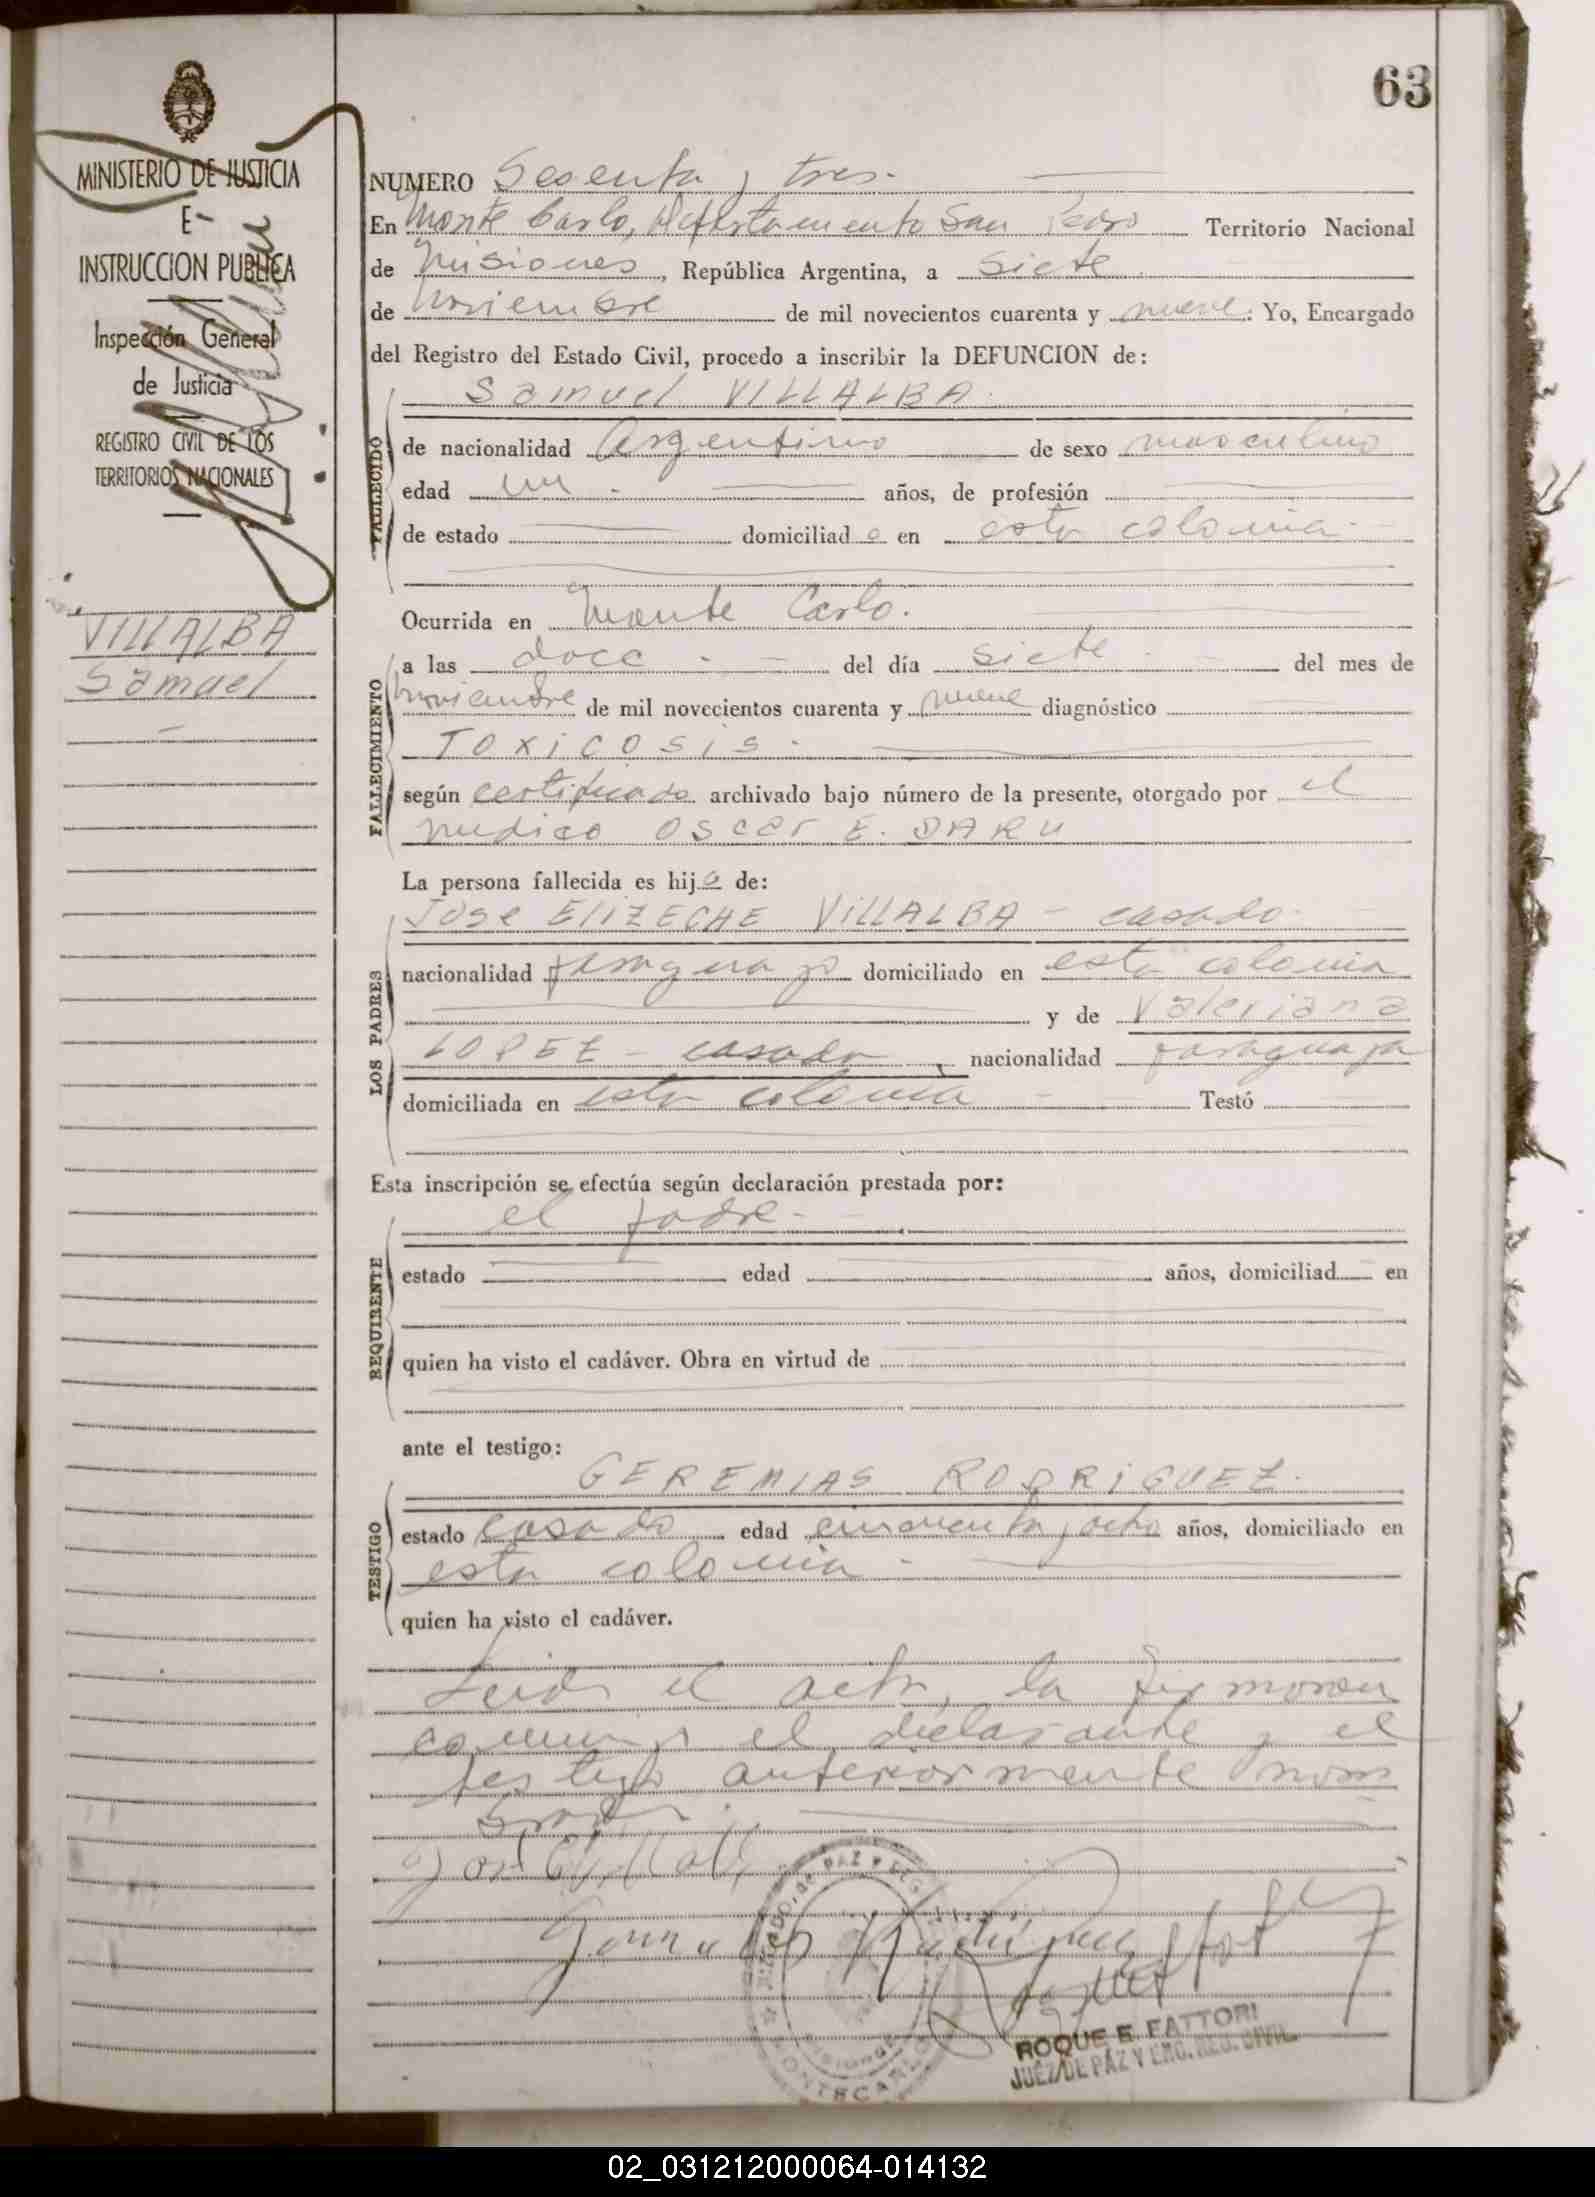 63
MINISTERIO DE JUSTICIA
E
INSTRUCCION PUBLICA
Inspección General
de Justicia
REGISTRO CIVIL DE LOS
TERRITORIOS NACIONALES
VILLALBA
Samuel
NUMERO Sesenta y tres.
En Monte Carlo, departamento San Pedro Territorio Nacional
de Misiones, República Argentina, a siete
de noviembre de mil novecientos cuarenta y nueve. Yo, Encargado
del Registro del Estado Civil, procedo a inscribir la DEFUNCION de:
Samuel VILLALBA.
FALLECIDO
de nacionalidad Argentino de sexo masculino
edad un. años, de profesión
de estado domiciliado en esta colonia.
Ocurrida en Monte Carlo.
FALLECIMIENTO
a las doce. del día siete. del mes de
noviembre de mil novecientos cuarenta y nueve diagnóstico
TOXICOSIS.
según certificado archivado bajo número de la presente, otorgado por el
medico Oscar E. DARU
La persona fallecida es hijo de:
LOS PADRES
Jose ELIZECHE VILLALBA - casado.
nacionalidad paraguayo domiciliado en esta colonia
y de Valeriana
LOPEZ - casada, nacionalidad paraguaya
domiciliada en esta colonia Testó
Esta inscripción se efectúa según declaración prestada por:
REQUIRENTE
el padre.
estado edad años, domiciliad en
quien ha visto el cadáver. Obra en virtud de
ante el testigo:
TESTIGO
GEREMIAS RODRIGUEZ.
estado casado edad cincuenta y ocho años, domiciliado en
esta colonia.
quien ha visto el cadáver.
Leida el acta, la firmaron
conmigo el declarante y el
testigo anteriormente nom
brado.
ROQUE E. FATTORI
JUEZ DE PAZ Y ENC. REG. CIVIL
02_031212000064-014132